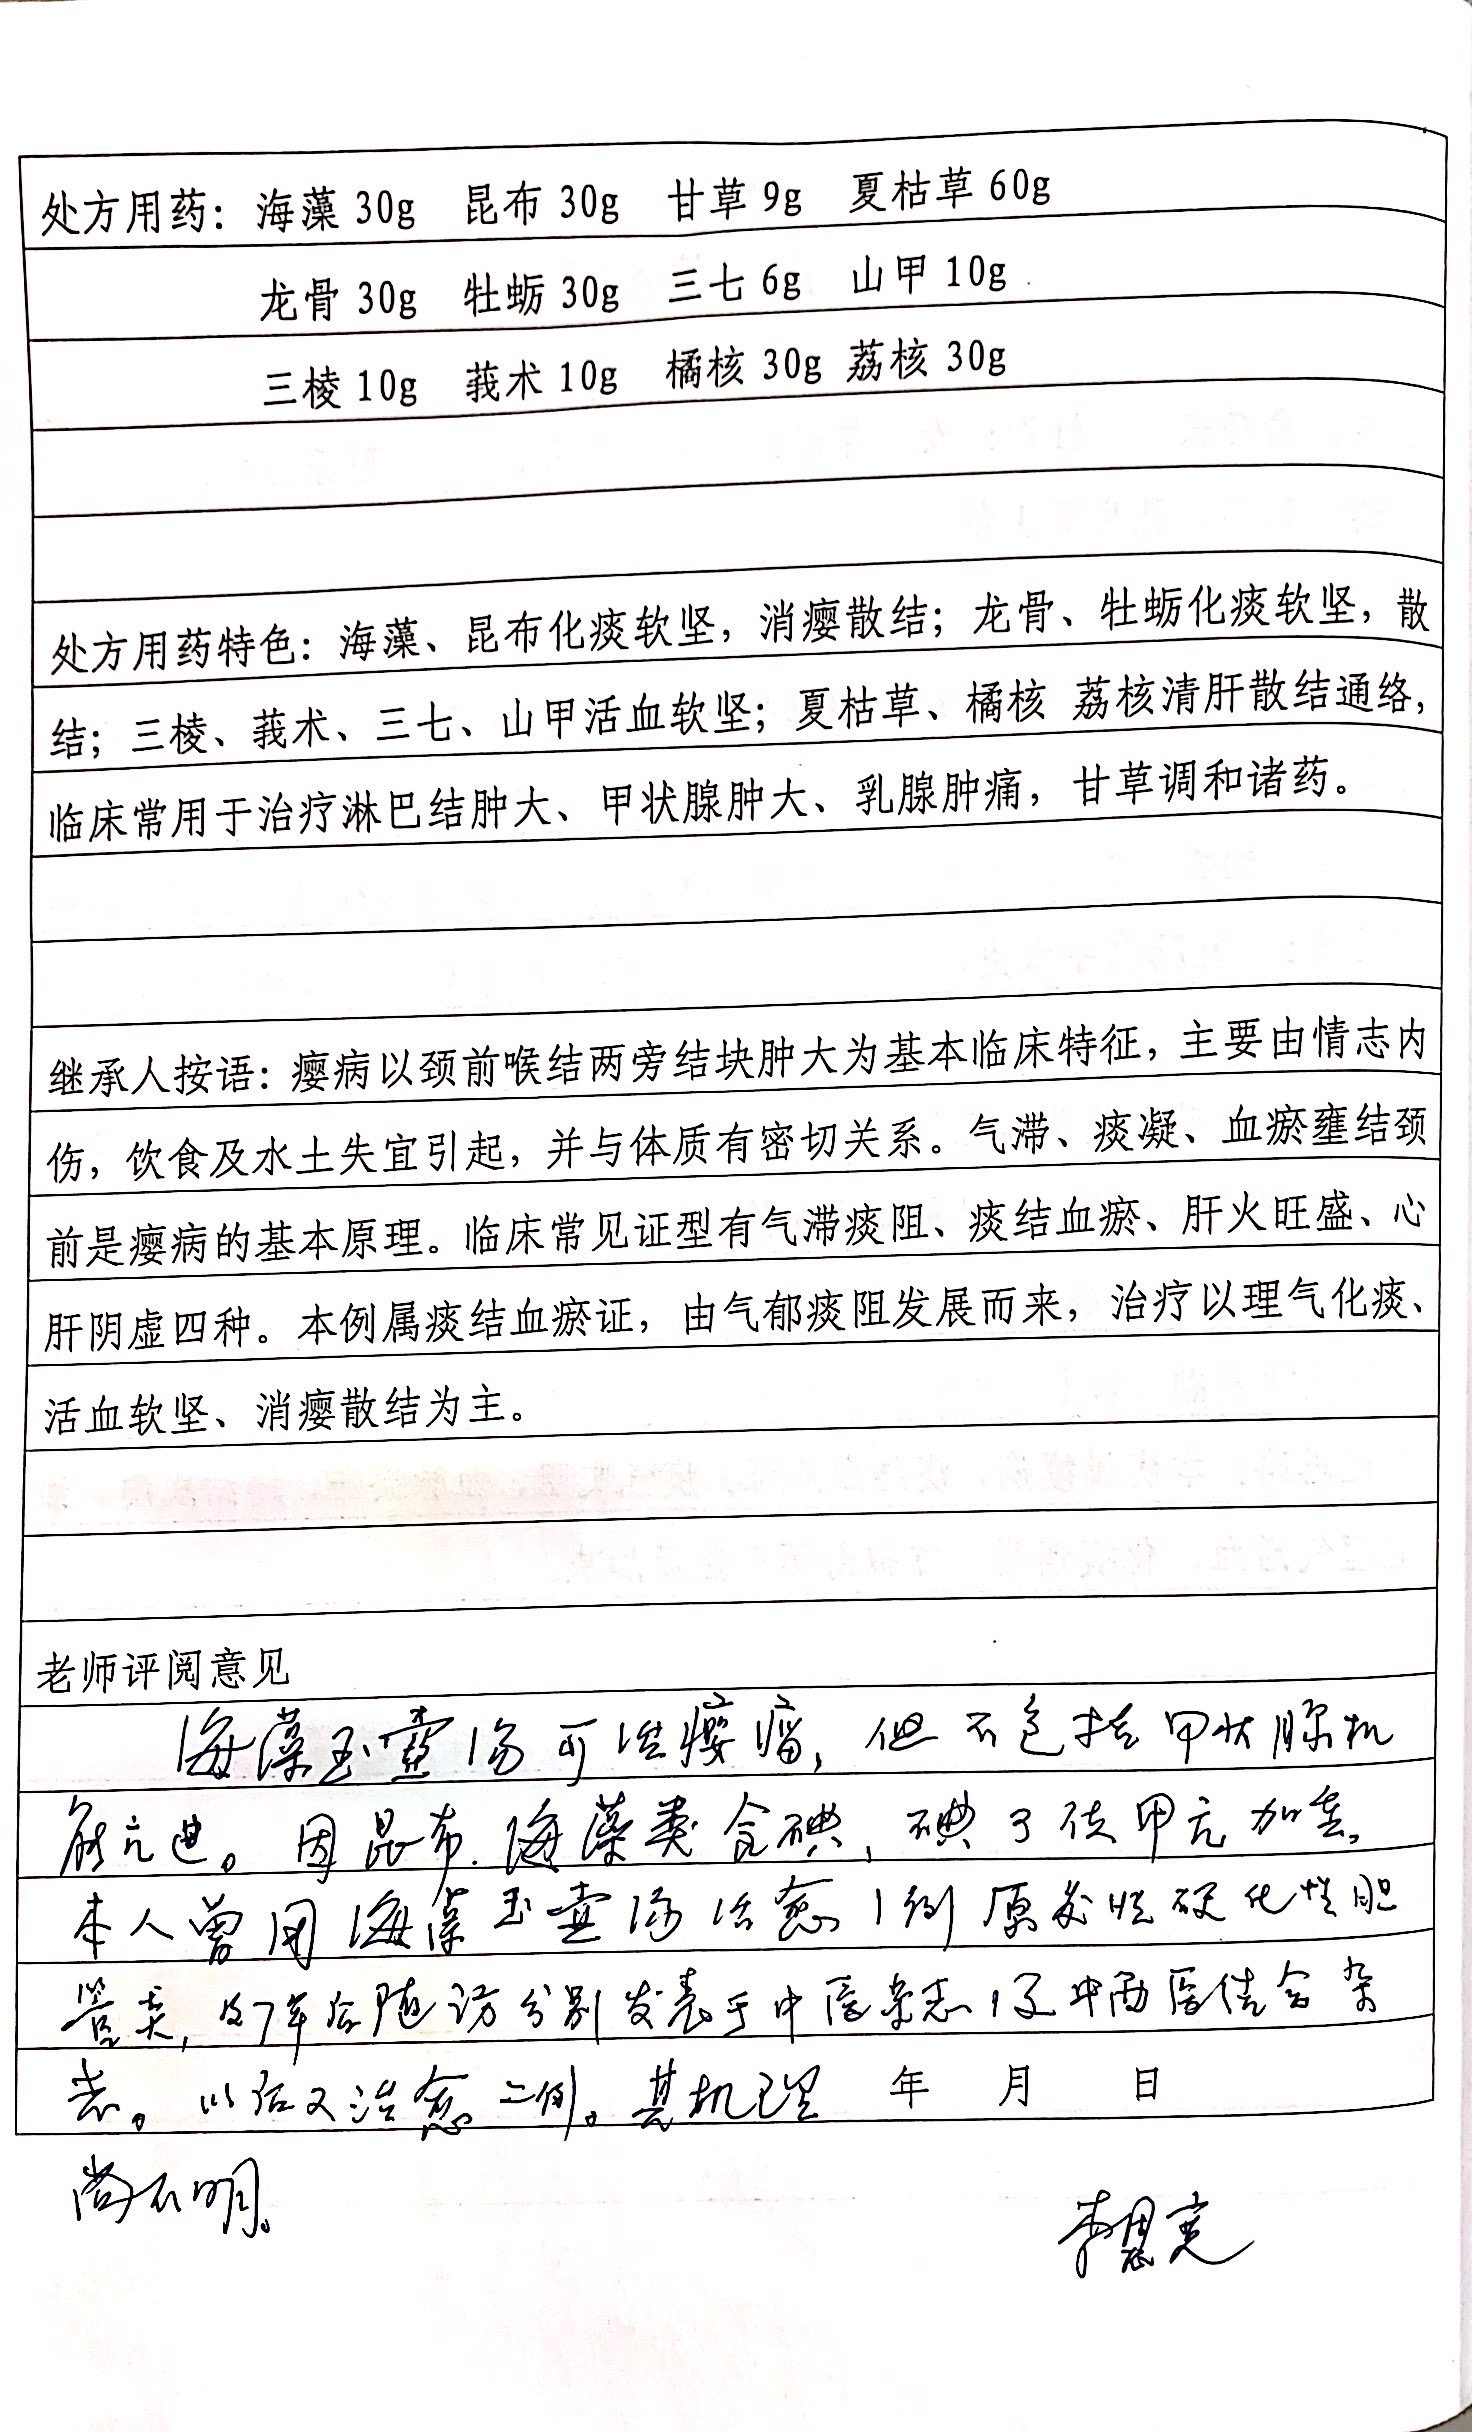 处方用药：海藻 30g 昆布 30g 甘草 9g 夏枯草 60g
龙骨 30g 牡蛎 30g 三七 6g 山甲 10g
三棱 10g 莪术 10g 橘核 30g 荔核 30g
处方用药特色：海藻、昆布化痰软坚，消瘿散结；龙骨、牡蛎化痰软坚，散
结；三棱、莪术、三七、山甲活血软坚；夏枯草、橘核 荔核清肝散结通络，
临床常用于治疗淋巴结肿大、甲状腺肿大、乳腺肿痛，甘草调和诸药。
继承人按语：瘿病以颈前喉结两旁结块肿大为基本临床特征，主要由情志内
伤，饮食及水土失宜引起，并与体质有密切关系。气滞、痰凝、血瘀壅结颈
前是瘿病的基本原理。临床常见证型有气滞痰阻、痰结血瘀、肝火旺盛、心
肝阴虚四种。本例属痰结血瘀证，由气郁痰阻发展而来，治疗以理气化痰、
活血软坚、消瘿散结为主。
老师评阅意见
海藻玉壶汤可治瘿瘤，但不包括甲状腺机
能亢进。因昆布、海藻类含碘，碘可使甲亢加重。
本人曾用海藻玉壶汤治愈1例原发性硬化性胆
管炎，及7年后随访分别发表于中医杂志，辽中西医结合杂
志。以后又治愈二例。其机理 年 月 日
尚不明。